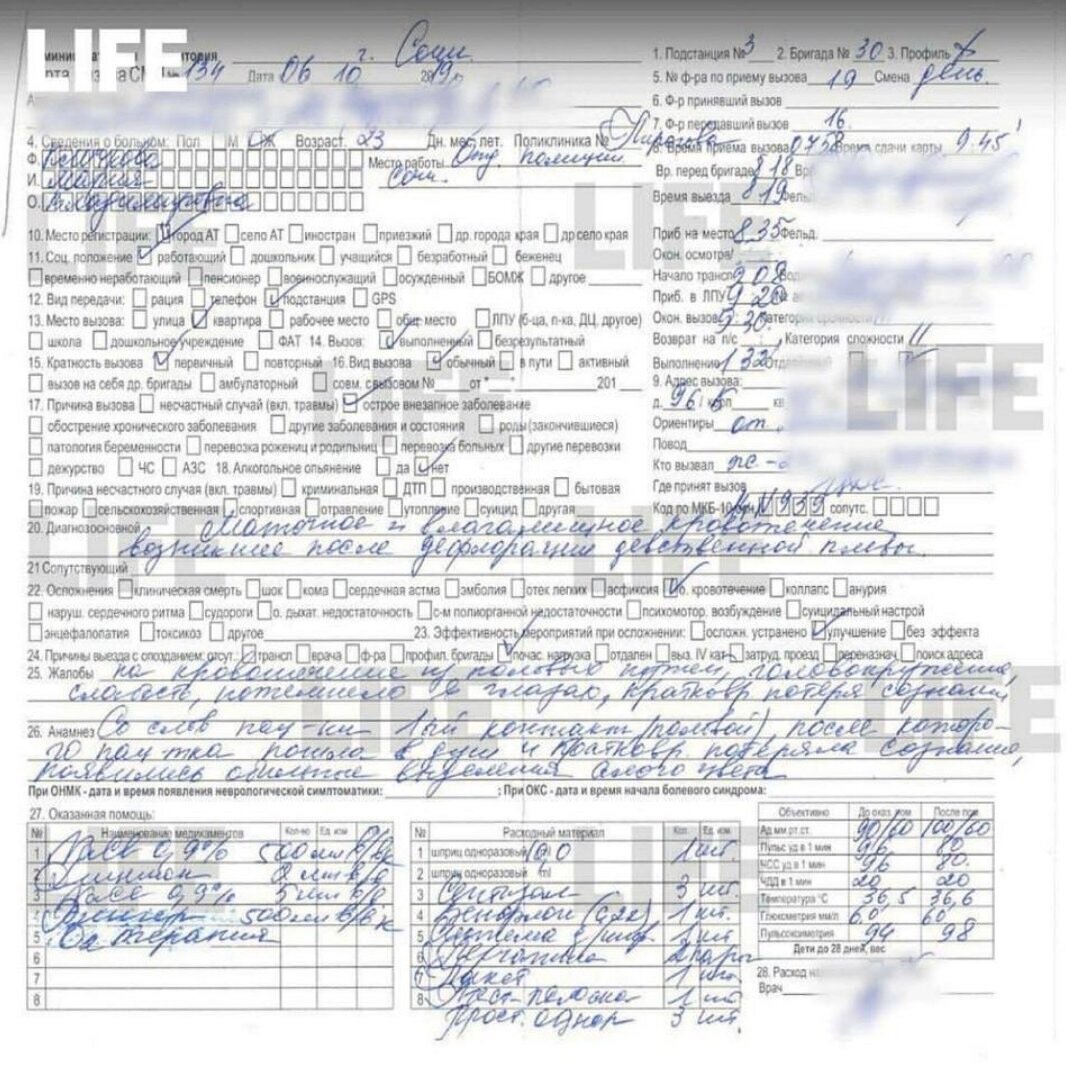 LIFE
г. Сочи
134 Дата 06 10 2019г
1. Подстанция № 3 2. Бригада № 30 3. Профиль
5. № ф-ра по приему вызова 19 Смена день.
6. Ф-р принявший вызов
7. Ф-р передавший вызов 16
4. Сведения о больном: Пол М Ж Возраст 23 Дн. мес. лет. Поликлиника №
8. Время приема вызова 0758 Время сдачи карты 9.45
Ф.
Место работы полиции
И. Мария
Сочи.
О. Владимировна
Вр. перед бригаде 818
Время выезда 819 Фельд.
10. Место регистрации: город АТ село АТ иностран приезжий др. города края др село края
Приб на место 8.35 Фельд.
11. Соц. положение работающий дошкольник учащийся безработный беженец
Окон. осмотра
временно неработающий пенсионер военнослужащий осужденный БОМЖ другое
Начало трансп 908
12. Вид передачи: рация телефон подстанция GPS
Приб. в ЛПУ 920
13. Место вызова: улица квартира рабочее место общ место ЛПУ (б-ца, п-ка, ДЦ, другое)
Окон. вызов 9.30. Категория срочности
школа дошкольное учреждение ФАТ 14. Вызов: выполненный безрезультатный
Возврат на п/с Категория сложности II
15. Кратность вызова первичный повторный 16. Вид вызова обычный в пути активный
Выполнение 132
вызов на себя др. бригады амбулаторный совм. с вызовом № от " " 201
9. Адрес вызова:
17. Причина вызова несчастный случай (вкл. травмы) острое внезапное заболевание
д. 96/ корп кв
обострение хронического заболевания другие заболевания и состояния роды (закончившиеся)
Ориентиры от.
патология беременности перевозка рожениц и родильниц перевозка больных другие перевозки
Повод
дежурство ЧС АЗС 18. Алкогольное опьянение да нет
Кто вызвал
19. Причина несчастного случая (вкл. травмы) криминальная ДТП производственная бытовая
Где принят вызов
пожар сельскохозяйственная спортивная отравление утопление суицид другая
Код по МКБ-10 N939 сопутс.
20. Диагноз основной Маточное и влагалищное кровотечение
возникшее после дефлорации девственной плевы.
21 Сопутствующий
22. Осложнения клиническая смерть шок кома сердечная астма эмболия отек легких асфиксия о. кровотечение коллапс анурия
наруш. сердечного ритма судороги о. дыхат. недостаточность с-м полиорганной недостаточности психомотор. возбуждение суицидальный настрой
энцефалопатия токсикоз другое 23. Эффективность мероприятий при осложнении: осложн. устранено улучшение без эффекта
24. Причины выезда с опозданием: отсут.: трансп врача ф-ра профил. бригады почас. нагрузка отдален выз. IV кат затруд. проезд переназнач поиск адреса
25. Жалобы на кровотечение из половых путей, головокружение,
слабость, потемнело в глазах, кратковр. потеря сознания
26. Анамнез Со слов пац-ки 1ый контакт (половой), после которо-
го пац-тка пошла в душ и кратковр. потеряла сознание,
появились обильные выделения алого цвета
При ОНМК - дата и время появления неврологической симптоматики: ; При ОКС - дата и время начала болевого синдрома:
27. Оказанная помощь:
№ Наименование медикаментов Кол-во Ед. изм
1 NaCl 0,9% 500 мл в/в к
2
3 NaCl 0,9% 5 мл в/в
4 500 мл в/в к
5 терапия
6
7
8
№ Расходный материал Кол. Ед. изм
1 шприц одноразовый ml 1 шт.
2 шприц одноразовый ml
3 3 шт.
4 1 шт.
5 Система 1 шт.
6 Перчатки 2 пары
7 Пакет 1 шт.
8 Тест-полоска 1 шт
Прост. однор 3 шт.
Объективно До оказ. пом После пом
Ад мм.рт.ст. 90/60 100/60
Пульс уд в 1 мин 96 80
ЧСС уд в 1 мин 96 80.
ЧДД в 1 мин 20 20
Температура °С 36,5 36,6
Глюкометрия мм/л 6,0 6,0
Пульсоксиметрия 94 98
Дети до 28 дней, вес
28. Расход
Врач